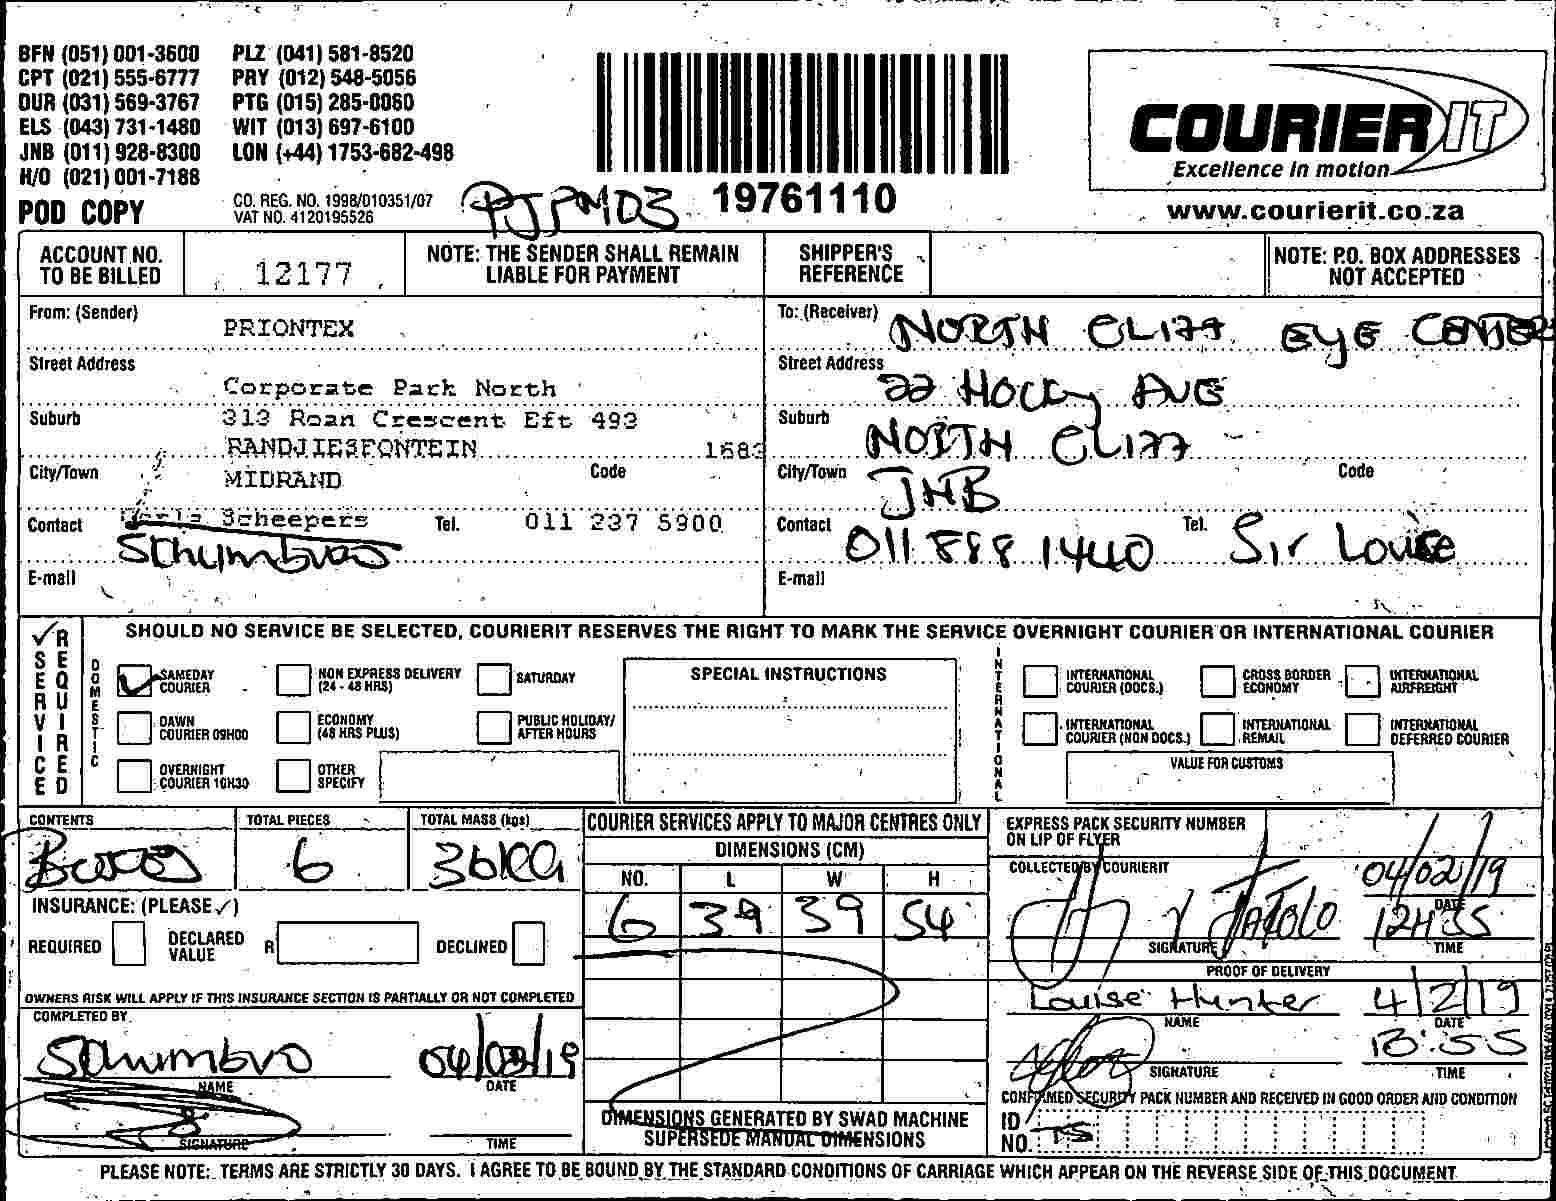 BFN (051) 001-3600 PLZ (041) 581-8520
CPT (021) 555-6777 PRY (012) 548-5056
DUR (031) 569-3767 PTG (015) 285-0060
ELS (043) 731-1480 WIT (013) 697-6100
JNB (011) 928-8300 LON (+44) 1753-682-498
H/O (021) 001-7188
POD COPY
CO. REG. NO. 1998/010351/07
VAT NO. 4120195526
PJPM03
19761110
COURIER IT
Excellence in motion
www.courierit.co.za
ACCOUNT NO. TO BE BILLED
12177
NOTE: THE SENDER SHALL REMAIN LIABLE FOR PAYMENT
SHIPPER'S REFERENCE
NOTE: P.O. BOX ADDRESSES NOT ACCEPTED
From: (Sender) PRIONTEX
Street Address Corporate Park North
Suburb 313 Roan Crescent Eft 493
RANDJIESFONTEIN 1683
City/Town MIDRAND Code
Contact Scheepers Tel. 011 237 5900
E-mail
To: (Receiver) NORTH CLIFF EYE CENTER
Street Address 22 HOCKY AVE
Suburb NORTH CLIFF
City/Town JHB Code
Contact 011 888 1440 Tel. Sir Louise
E-mail
✓ SERVICE REQUIRED
SHOULD NO SERVICE BE SELECTED, COURIERIT RESERVES THE RIGHT TO MARK THE SERVICE OVERNIGHT COURIER OR INTERNATIONAL COURIER
DOMESTIC
✓ SAMEDAY COURIER
NON EXPRESS DELIVERY (24 - 48 HRS)
SATURDAY
DAWN COURIER 09H00
ECONOMY (48 HRS PLUS)
PUBLIC HOLIDAY/ AFTER HOURS
OVERNIGHT COURIER 10H30
OTHER SPECIFY
SPECIAL INSTRUCTIONS
INTERNATIONAL
INTERNATIONAL COURIER (DOCS.)
CROSS BORDER ECONOMY
INTERNATIONAL AIRFREIGHT
INTERNATIONAL COURIER (NON DOCS.)
INTERNATIONAL REMAIL
INTERNATIONAL DEFERRED COURIER
VALUE FOR CUSTOMS
CONTENTS Boxes
TOTAL PIECES 6
TOTAL MASS (kgs) 36KG
INSURANCE: (PLEASE ✓)
REQUIRED DECLARED VALUE R DECLINED
OWNERS RISK WILL APPLY IF THIS INSURANCE SECTION IS PARTIALLY OR NOT COMPLETED
COMPLETED BY
04/02/19
NAME DATE
SIGNATURE TIME
COURIER SERVICES APPLY TO MAJOR CENTRES ONLY
DIMENSIONS (CM)
NO. L W H
6 39 39 54
DIMENSIONS GENERATED BY SWAD MACHINE
SUPERSEDE MANUAL DIMENSIONS
EXPRESS PACK SECURITY NUMBER ON LIP OF FLYER
COLLECTED BY COURIERIT
04/02/19
DATE
SIGNATURE
TIME
PROOF OF DELIVERY
Louise Hunter 4/2/19
NAME DATE
13:55
SIGNATURE TIME
CONFIRMED SECURITY PACK NUMBER AND RECEIVED IN GOOD ORDER AND CONDITION
ID NO.
PLEASE NOTE: TERMS ARE STRICTLY 30 DAYS. I AGREE TO BE BOUND BY THE STANDARD CONDITIONS OF CARRIAGE WHICH APPEAR ON THE REVERSE SIDE OF THIS DOCUMENT